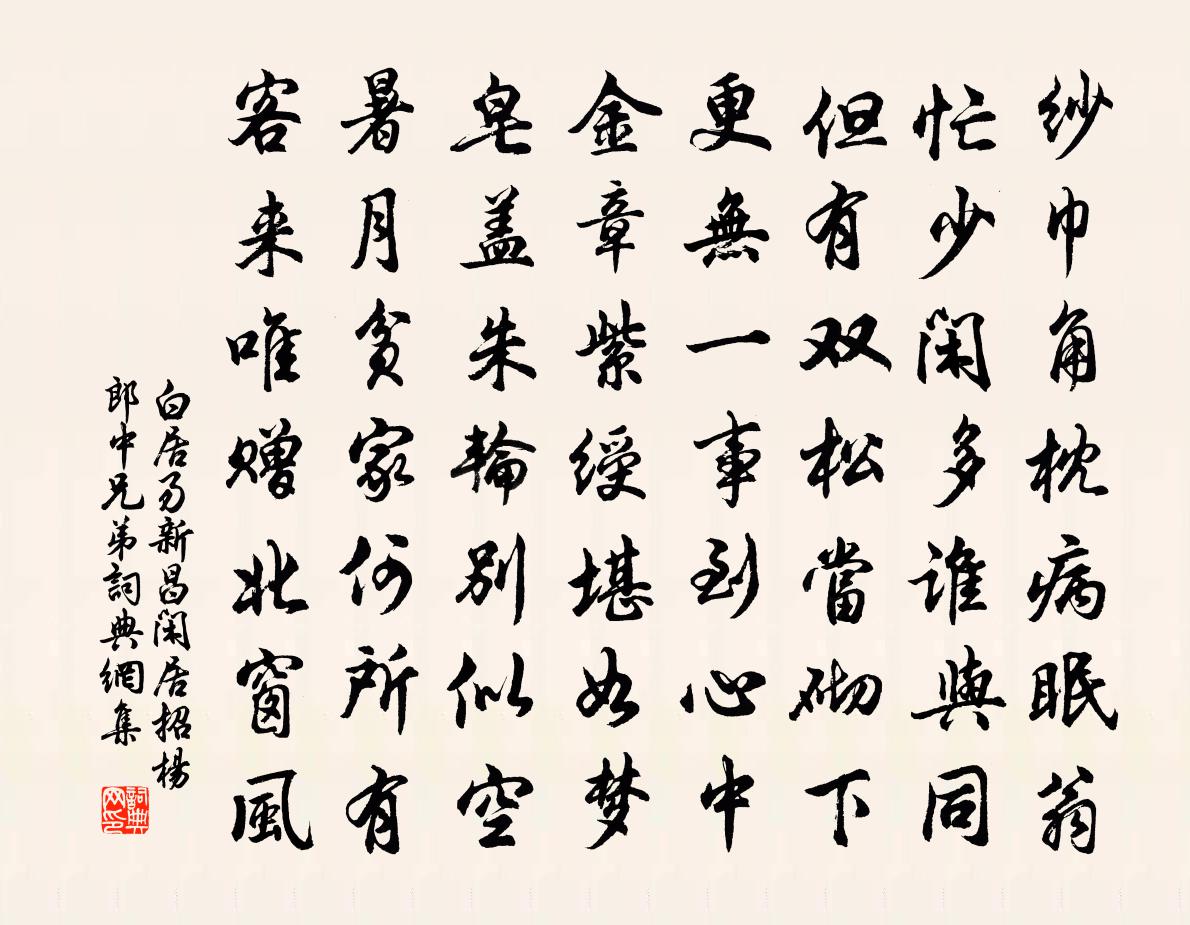 纱巾角枕病眠翁
忙少闲多誰與同
但有双松當砌下
更無一事到心中
金章紫綬堪如梦
皂盖朱輪別似空
暑月贫家何所有
客来唯赠北窗風
白居易新昌闲居招楊
郎中兄弟詞典網集
詞典网印